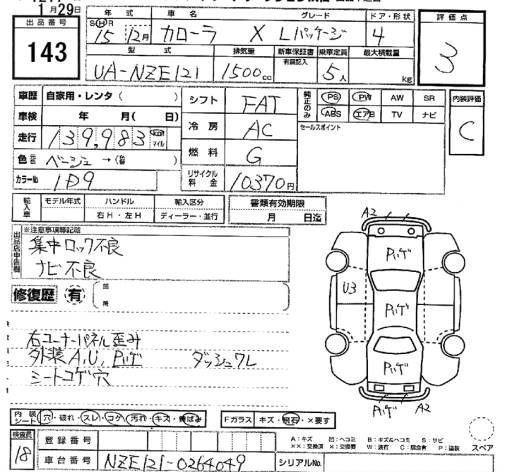 月29日
出品番号
143
年式 車名 グレード ドア・形状
SHR 15年 12月 カローラ X Lパッケージ 4
型式 排気量 新車保証書 乗車定員 最大積載量
有 記録入
UA-NZE121 1500cc 5人 kg
評価点
3
車歴 自家用・レンタ( )
車検 年 月(日)
走行 139,983 マイル
色 ベージュ→(替 )
カラーNo 1D9
シフト FAT
冷房 AC
燃料 G
リサイクル料金 10370円
純正のみ PS PW AW SR
ABS エアB TV ナビ
セールスポイント
内装評価
C
輸入車 モデル年式 ハンドル 輸入区分
右H・左H ディーラー・並行
書類有効期限
月 日迄
出品店申告欄
※注意事項等記載
集中ロック不良
ナビ不良
修復歴 有 箇所
右コーナーパネル歪み
外装A,U,ハゲ ダッシュワレ
シートコゲ穴
A2
ハゲ
U3
ハゲ
ハゲ
ハゲ A2
内装シート 穴・破れ・スレ・コゲ・汚れ・キズ・黄ばみ
Fガラス キズ・飛石・×要す
スペア
検査員
18
登録番号
車台番号 NZE121-0264049
シリアルNo.
A:キズ U:ヘコミ B:キズ&ヘコミ S:サビ
XX:交換済 X:交換要 W:波打 C:腐食 P:塗装